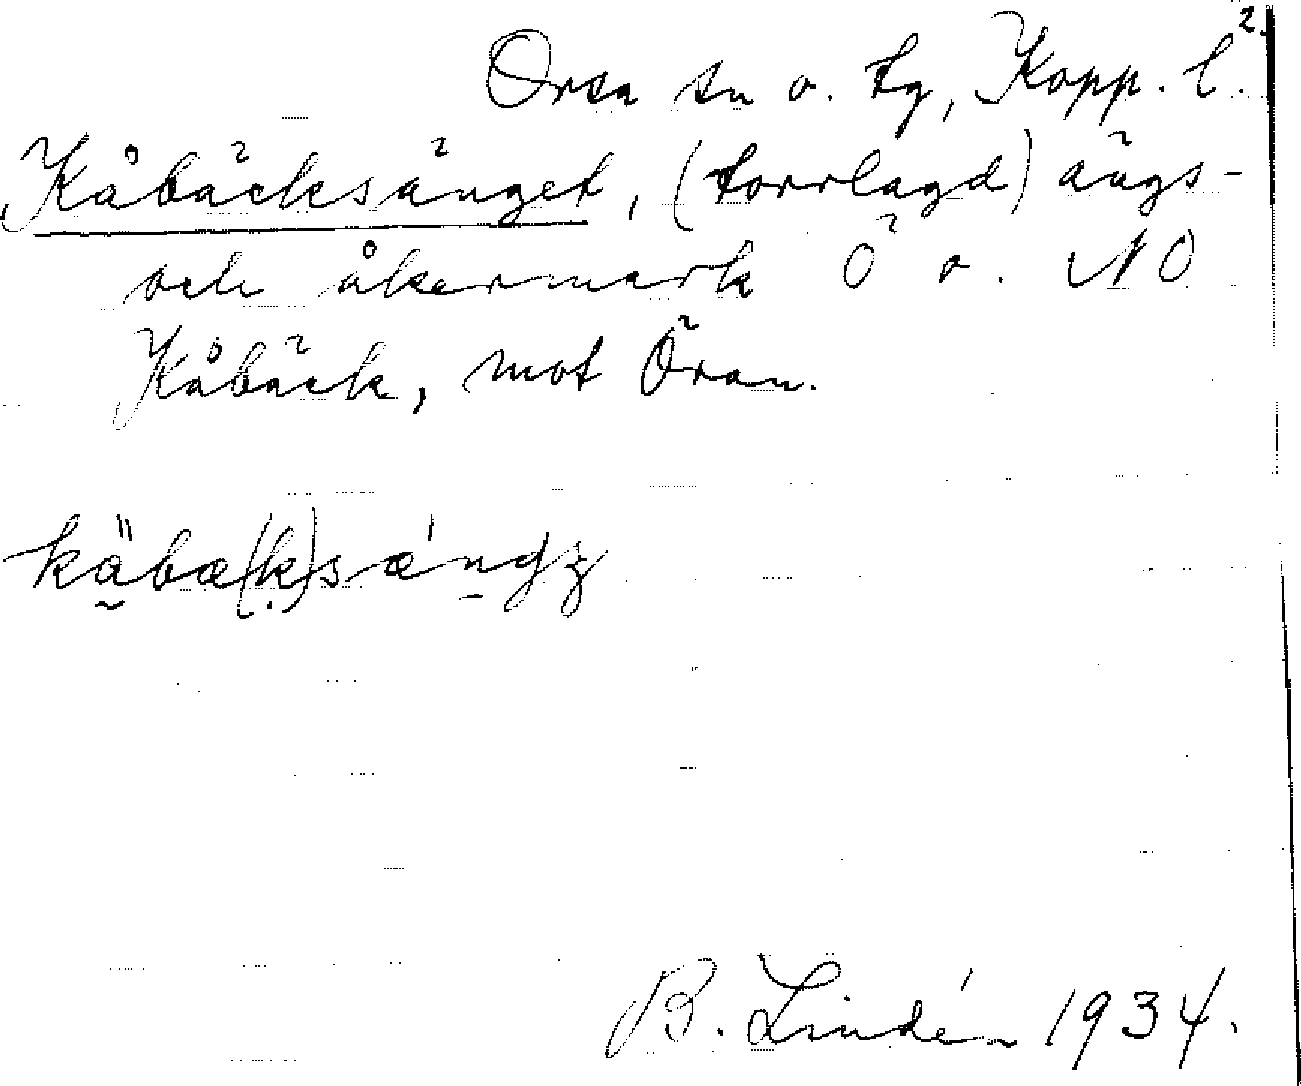 2.
Orsa sn o. tg, Kopp. l.
Kåbäcksänget, (torrlagd) ängs-
och åkermark Ö o. NO
Kåbäck, mot Öran.
B. Lindén 1934.